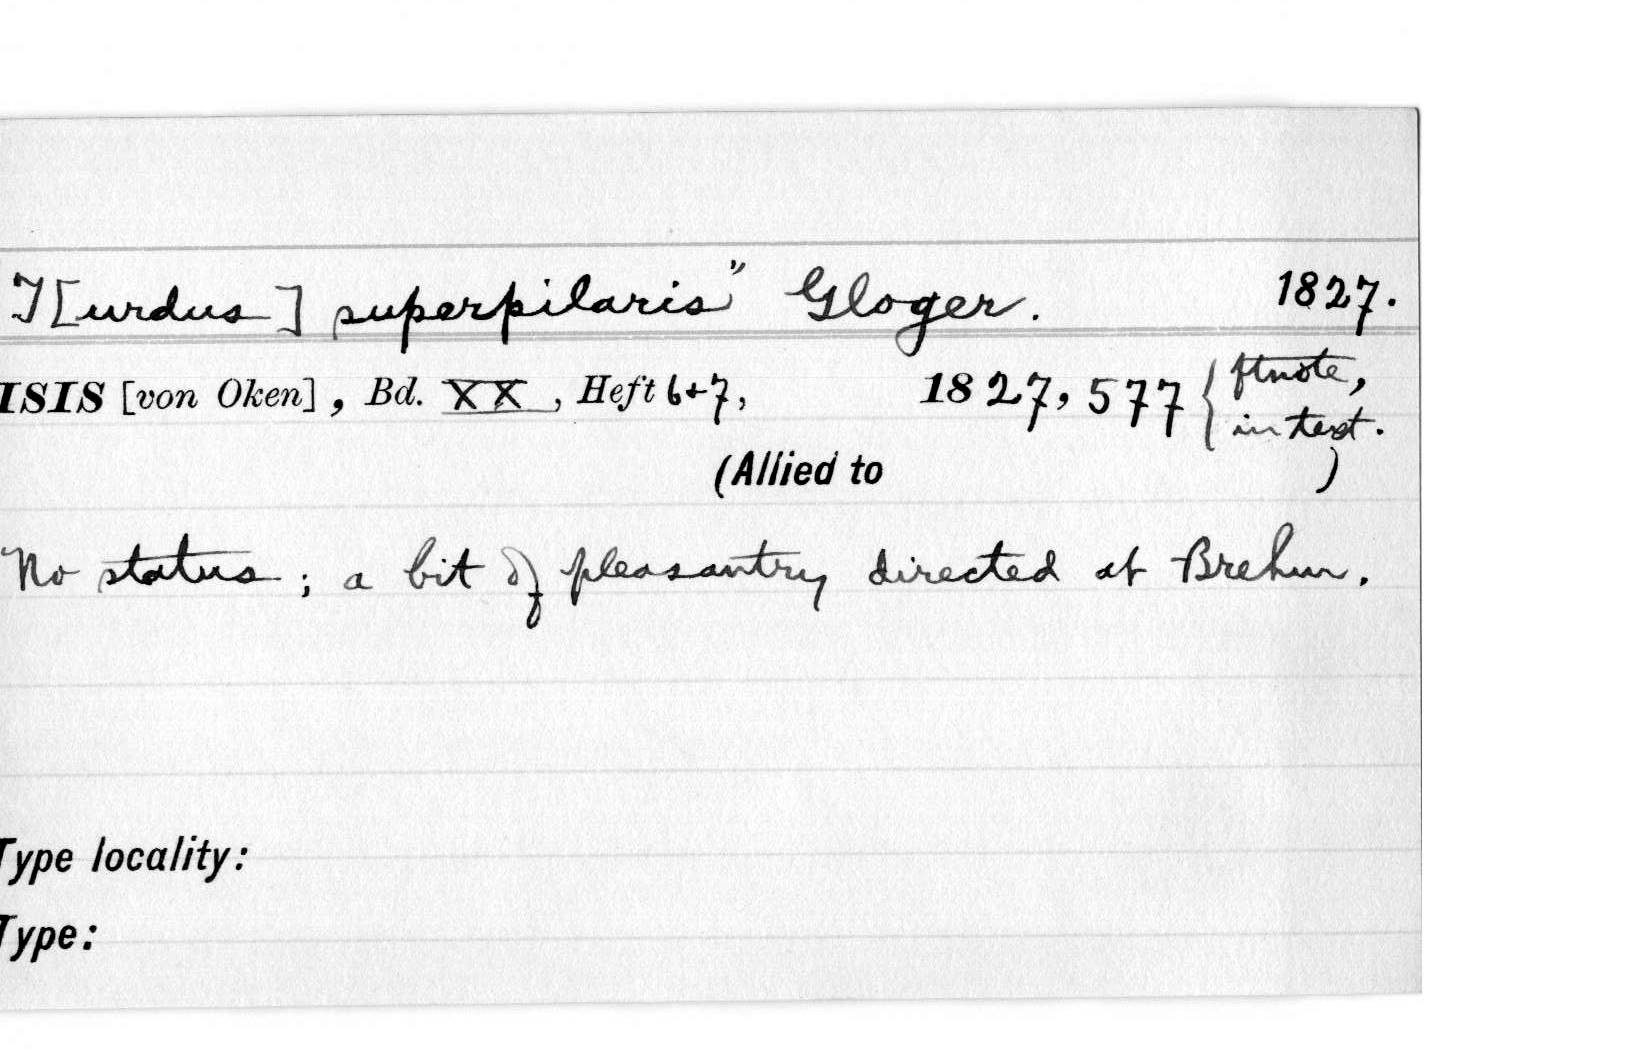 T[urdus] superpilaris" Gloger. 1827.
ISIS [von Oken], Bd. XX, Heft 6+7, 1827, 577 { ftnote,
in text.
(Allied to )
No status; a bit of pleasantry directed at Brehm.
Type locality:
Type: